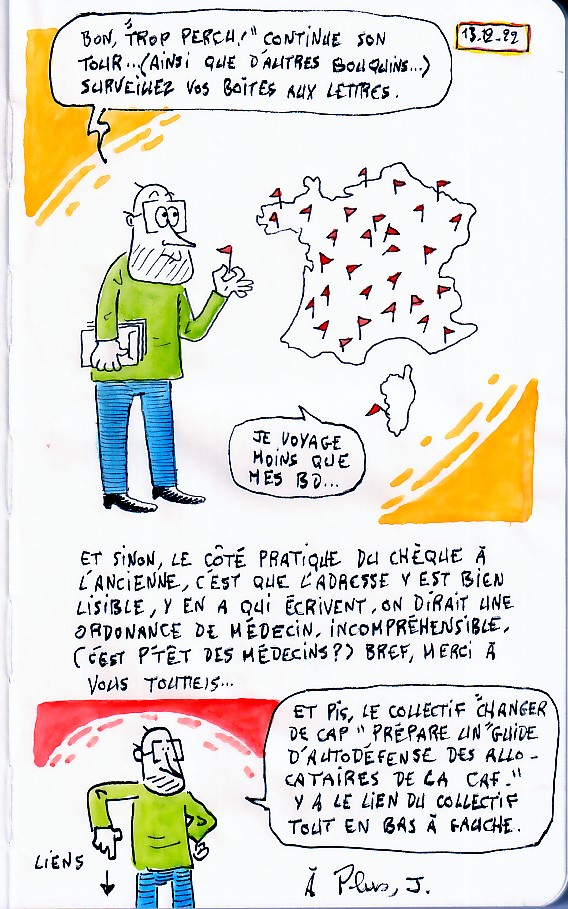 13.12.22
BON, "TROP PERÇU!" CONTINUE SON
TOUR... (AINSI QUE D'AUTRES BOUQUINS...)
SURVEILLEZ VOS BOÎTES AUX LETTRES.
JE VOYAGE
MOINS QUE
MES BD...
ET SINON, LE CÔTÉ PRATIQUE DU CHÈQUE À
L'ANCIENNE, C'EST QUE L'ADRESSE Y EST BIEN
LISIBLE, Y EN A QUI ÉCRIVENT, ON DIRAIT UNE
ORDONANCE DE MÉDECIN, INCOMPRÉHENSIBLE.
(C'EST P'TÊT DES MÉDECINS?) BREF, MERCI À
VOUS TOUTEIS...
ET PIS, LE COLLECTIF "CHANGER
DE CAP" PRÉPARE UN "GUIDE
D'AUTODÉFENSE DES ALLO-
CATAIRES DE LA CAF."
Y A LE LIEN DU COLLECTIF
TOUT EN BAS À GAUCHE.
LIENS
À Plus, J.